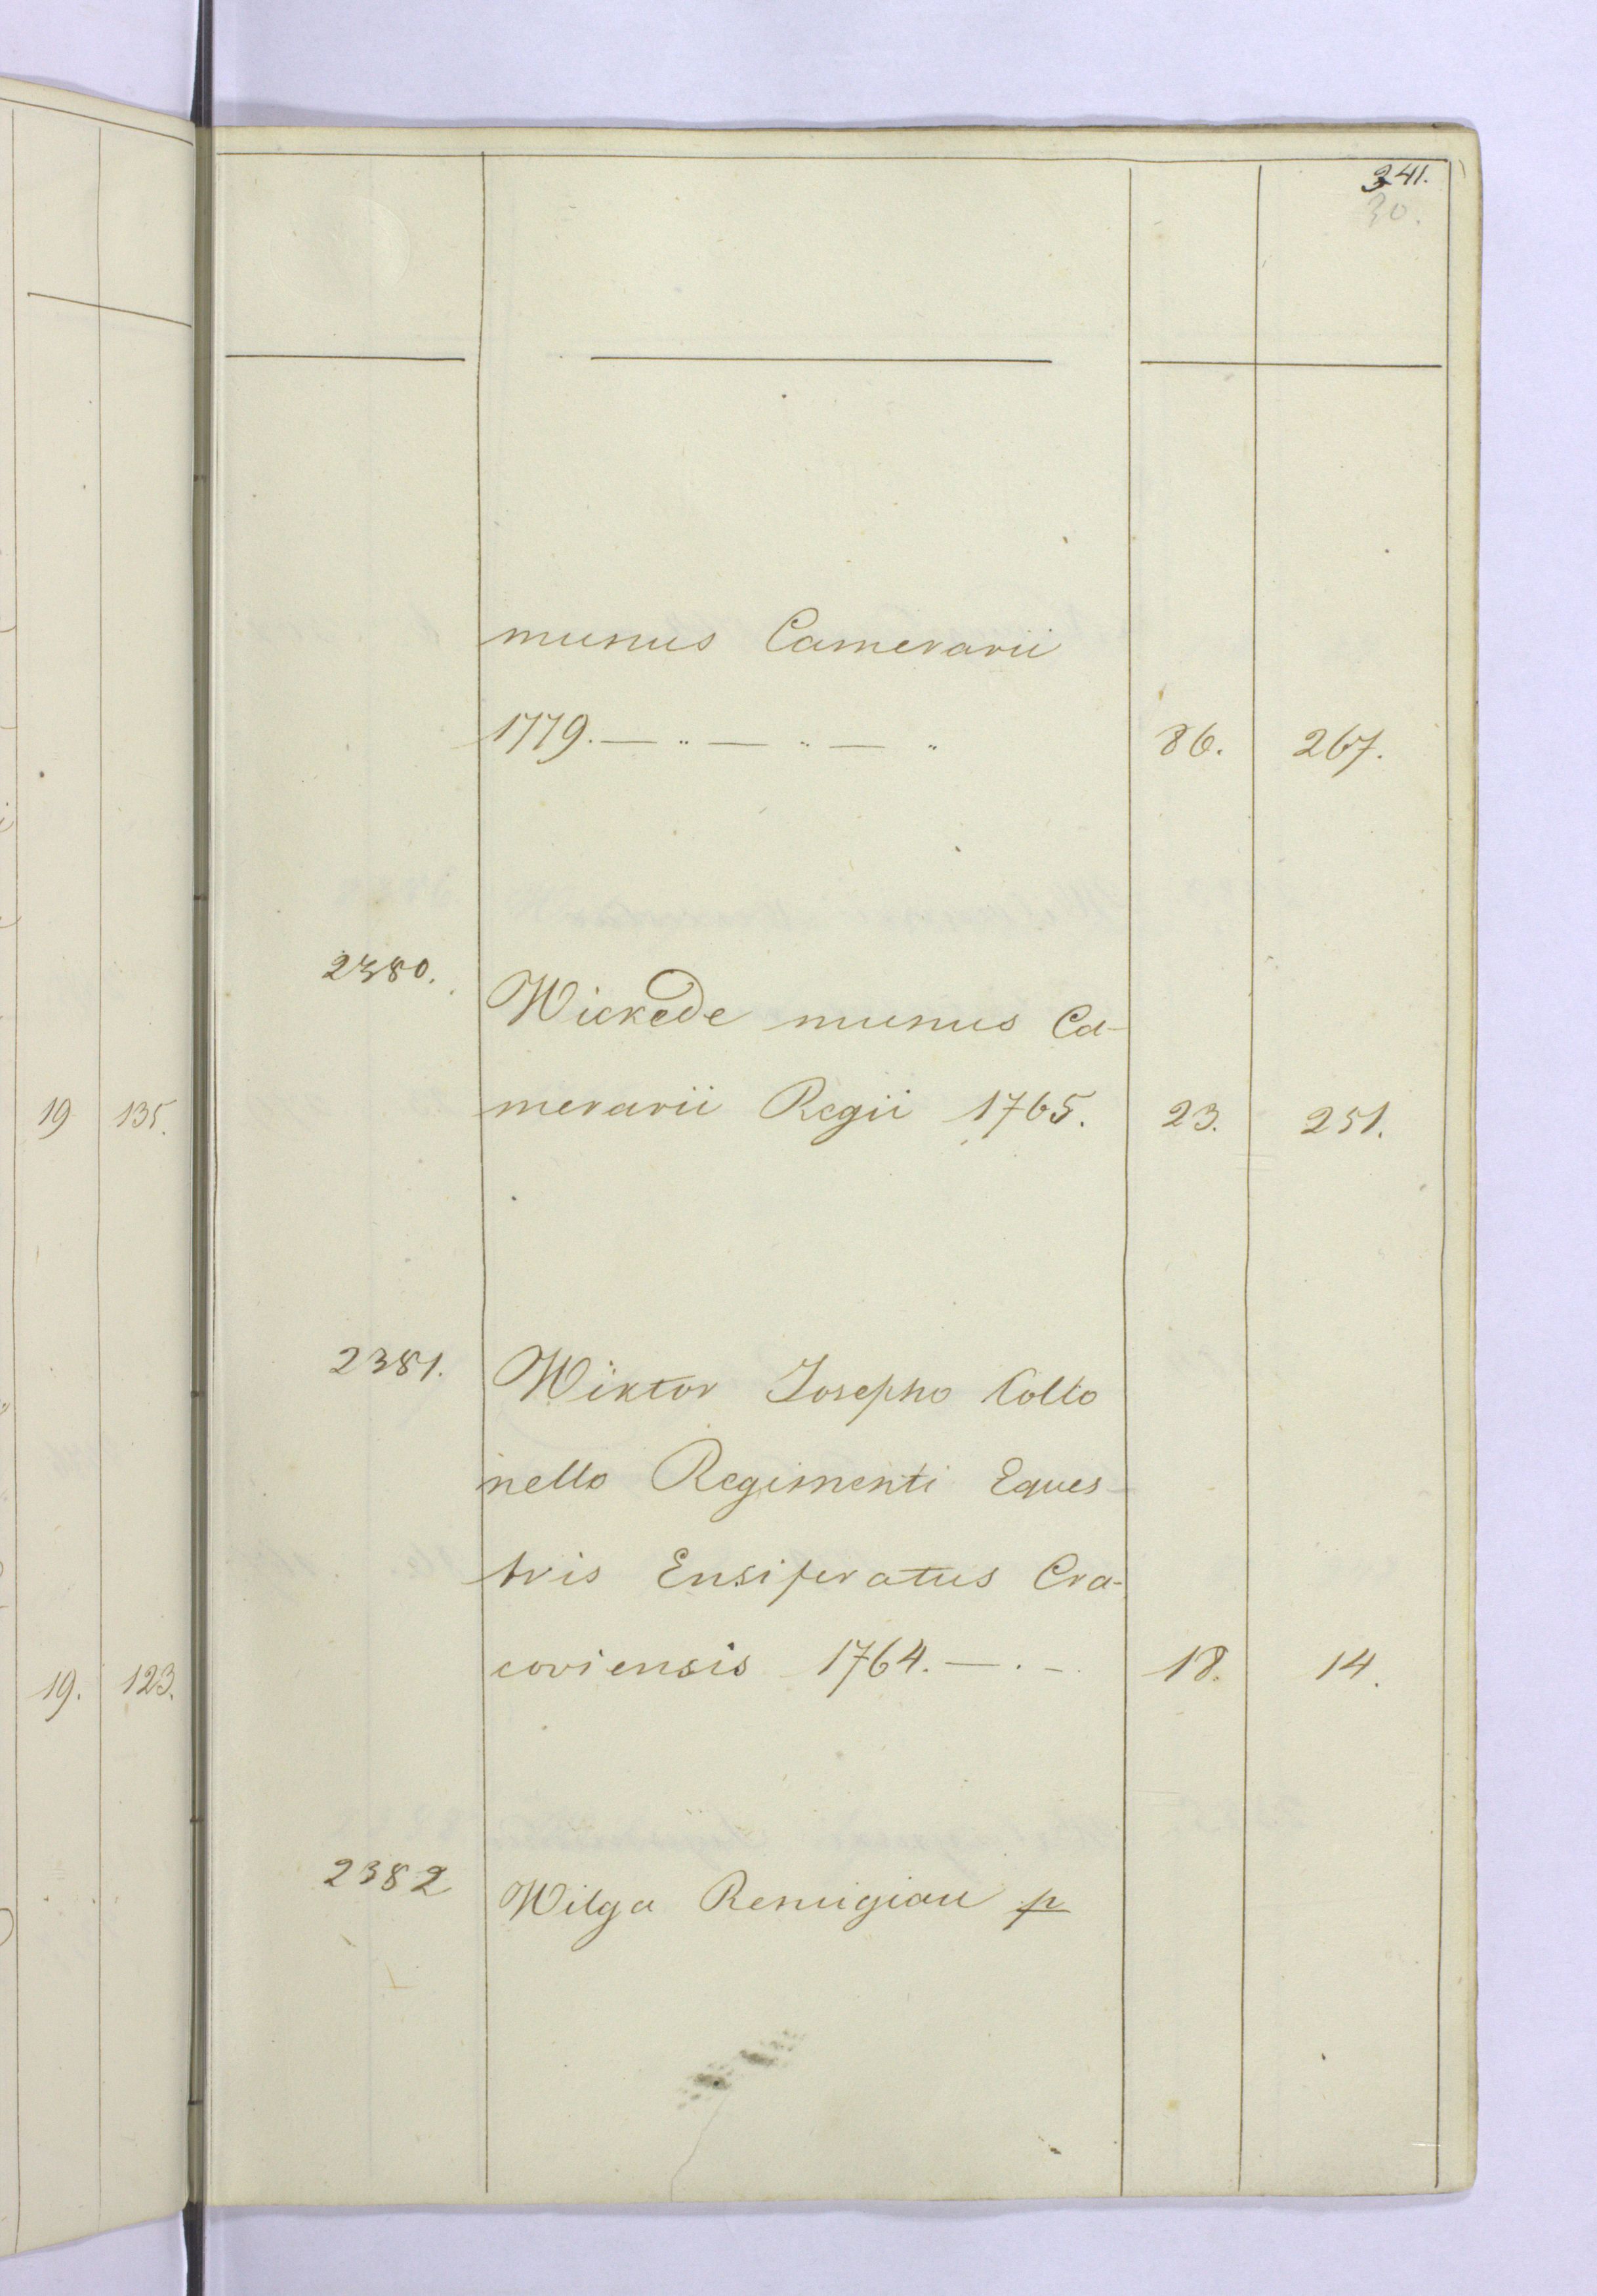 341.
30.
munus Camerarii
1779. — .. — .. — .. 86. 267.
2380. Wickede munus Ca-
merarii Regii 1765. 23. 251.
2381. Wiktor Josepho Collo
nello Regimenti Eques-
tris Ensiferatus Cra-
coviensis 1764. — . - 18. 14.
2382 Wilga Remigian p
19 135.
19. 123.